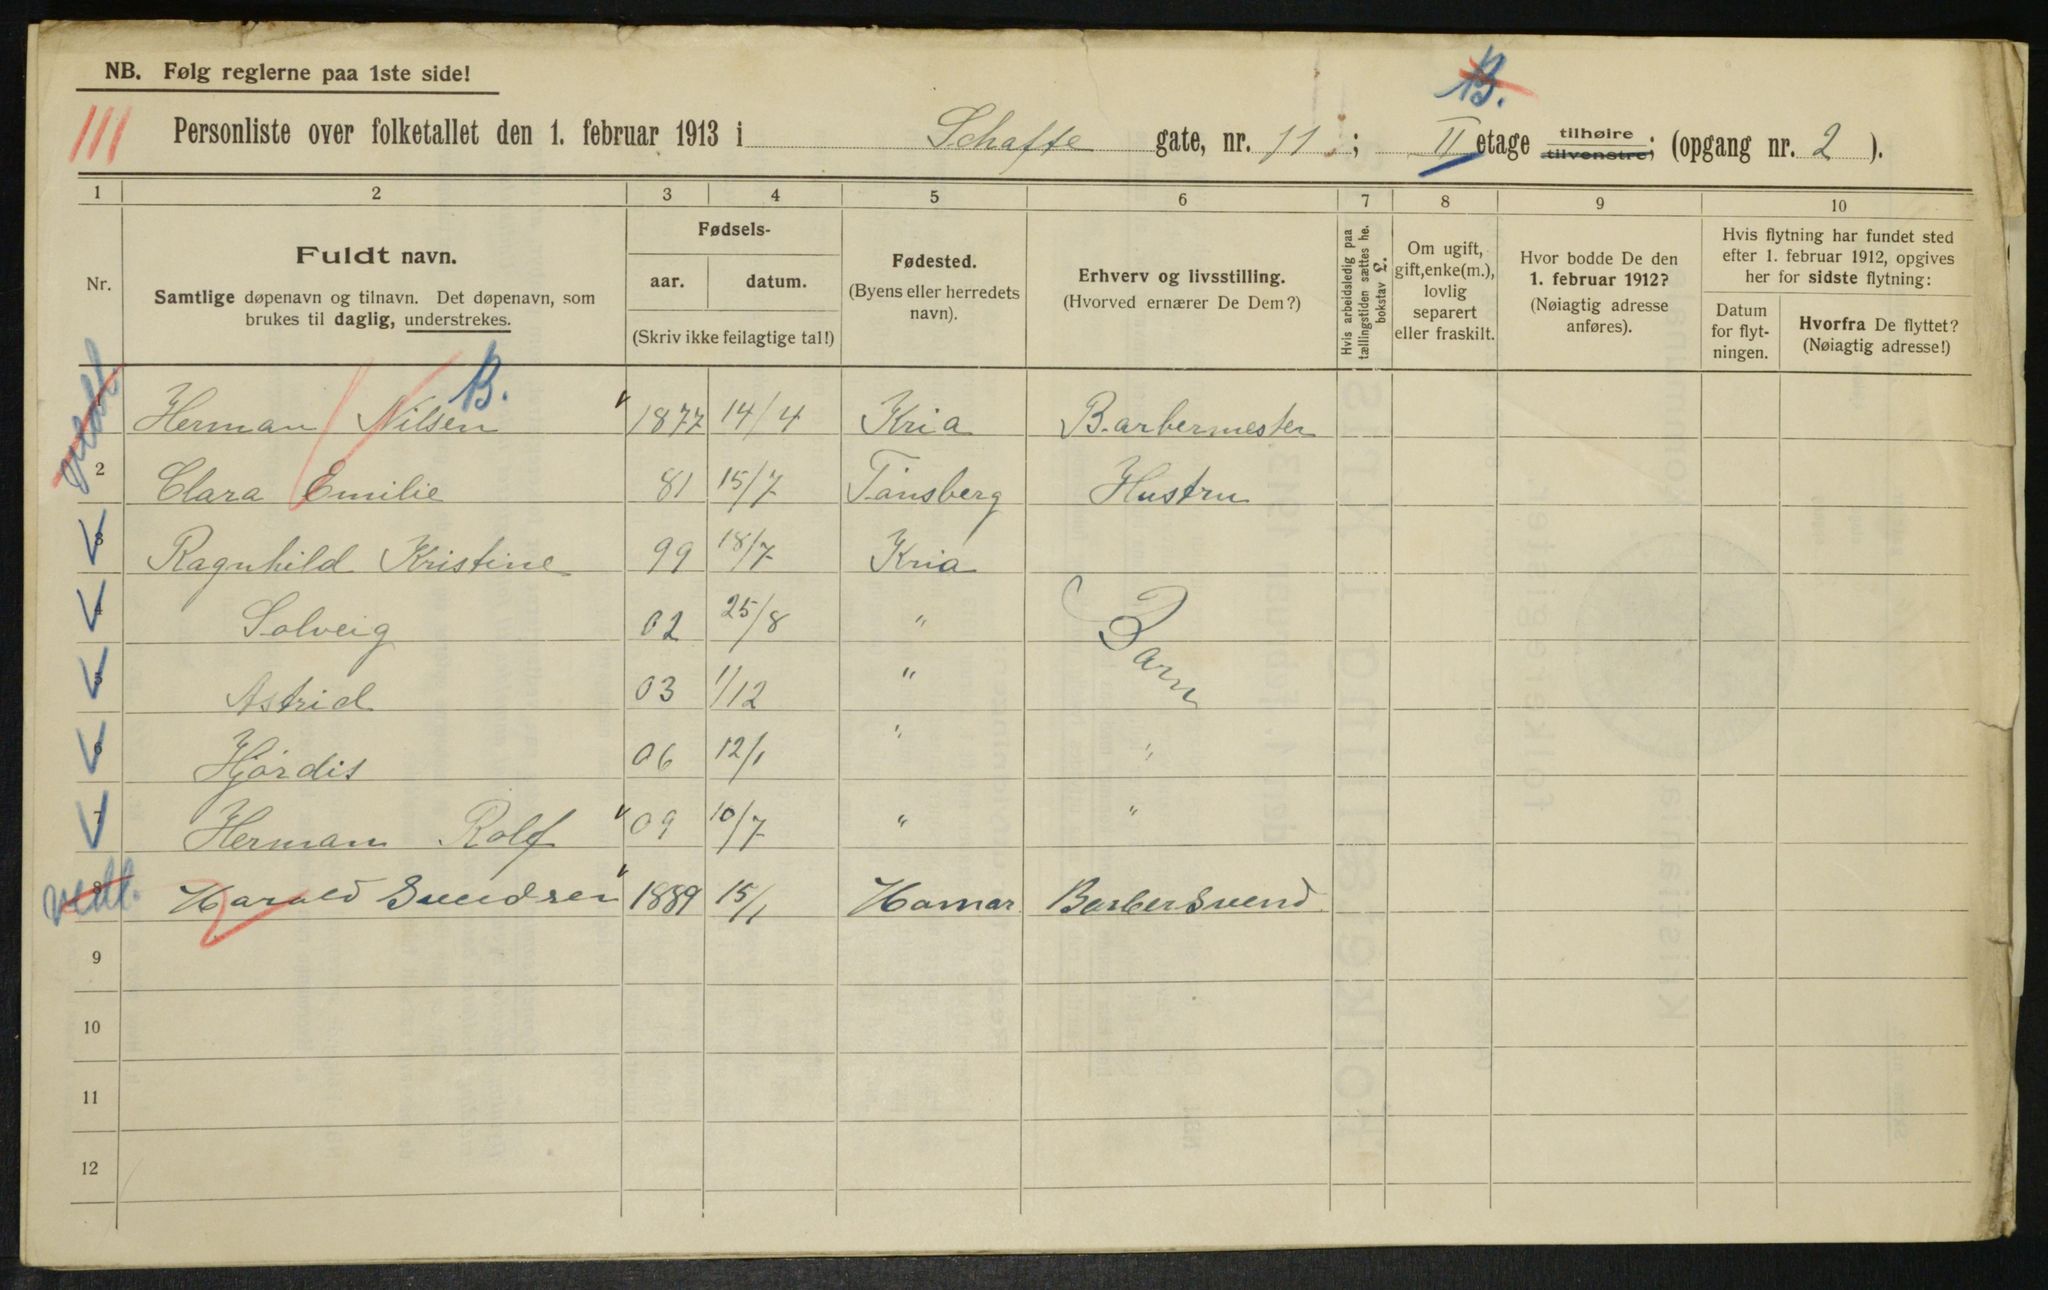 NB. Følg reglerne paa 1ste side!
B.
111 Personliste over folketallet den 1. februar 1913 i Schafte gate, nr. 11; II etage tilhøire tilvenstre; (opgang nr. 2).
1 2 3 4 5 6 7 8 9 10
Nr.
Fuldt navn.
Samtlige døpenavn og tilnavn. Det døpenavn, som
brukes til daglig, understrekes.
Fødsels-
aar. datum.
(Skriv ikke feilagtige tal!)
Fødested.
(Byens eller herredets
navn).
Erhverv og livsstilling.
(Hvorved ernærer De Dem?)
Hvis arbeidsledig paa
tællingstiden sættes he.
bokstav L.
Om ugift,
gift,enke(m.),
lovlig
separert
eller fraskilt.
Hvor bodde De den
1. februar 1912?
(Nøiagtig adresse
anføres).
Hvis flytning har fundet sted
efter 1. februar 1912, opgives
her for sidste flytning:
Datum
for flyt-
ningen.
Hvorfra De flyttet?
(Nøiagtig adresse!)
B.
1 Herman Nilsen 1877 14/4 Kria Barbermester
2 Clara Emilie 81 15/7 Tønsberg Hustru
3 Ragnhild Kristine 99 18/7 Kria
4 Solveig 02 25/8 " Barn
5 Astrid 03 1/12 "
6 Hjørdis 06 12/1 " "
7 Herman Rolf 09 10/7 " "
8 Harald Svendsen 1889 15/1 Hamar Barbersvend
9
10
11
12